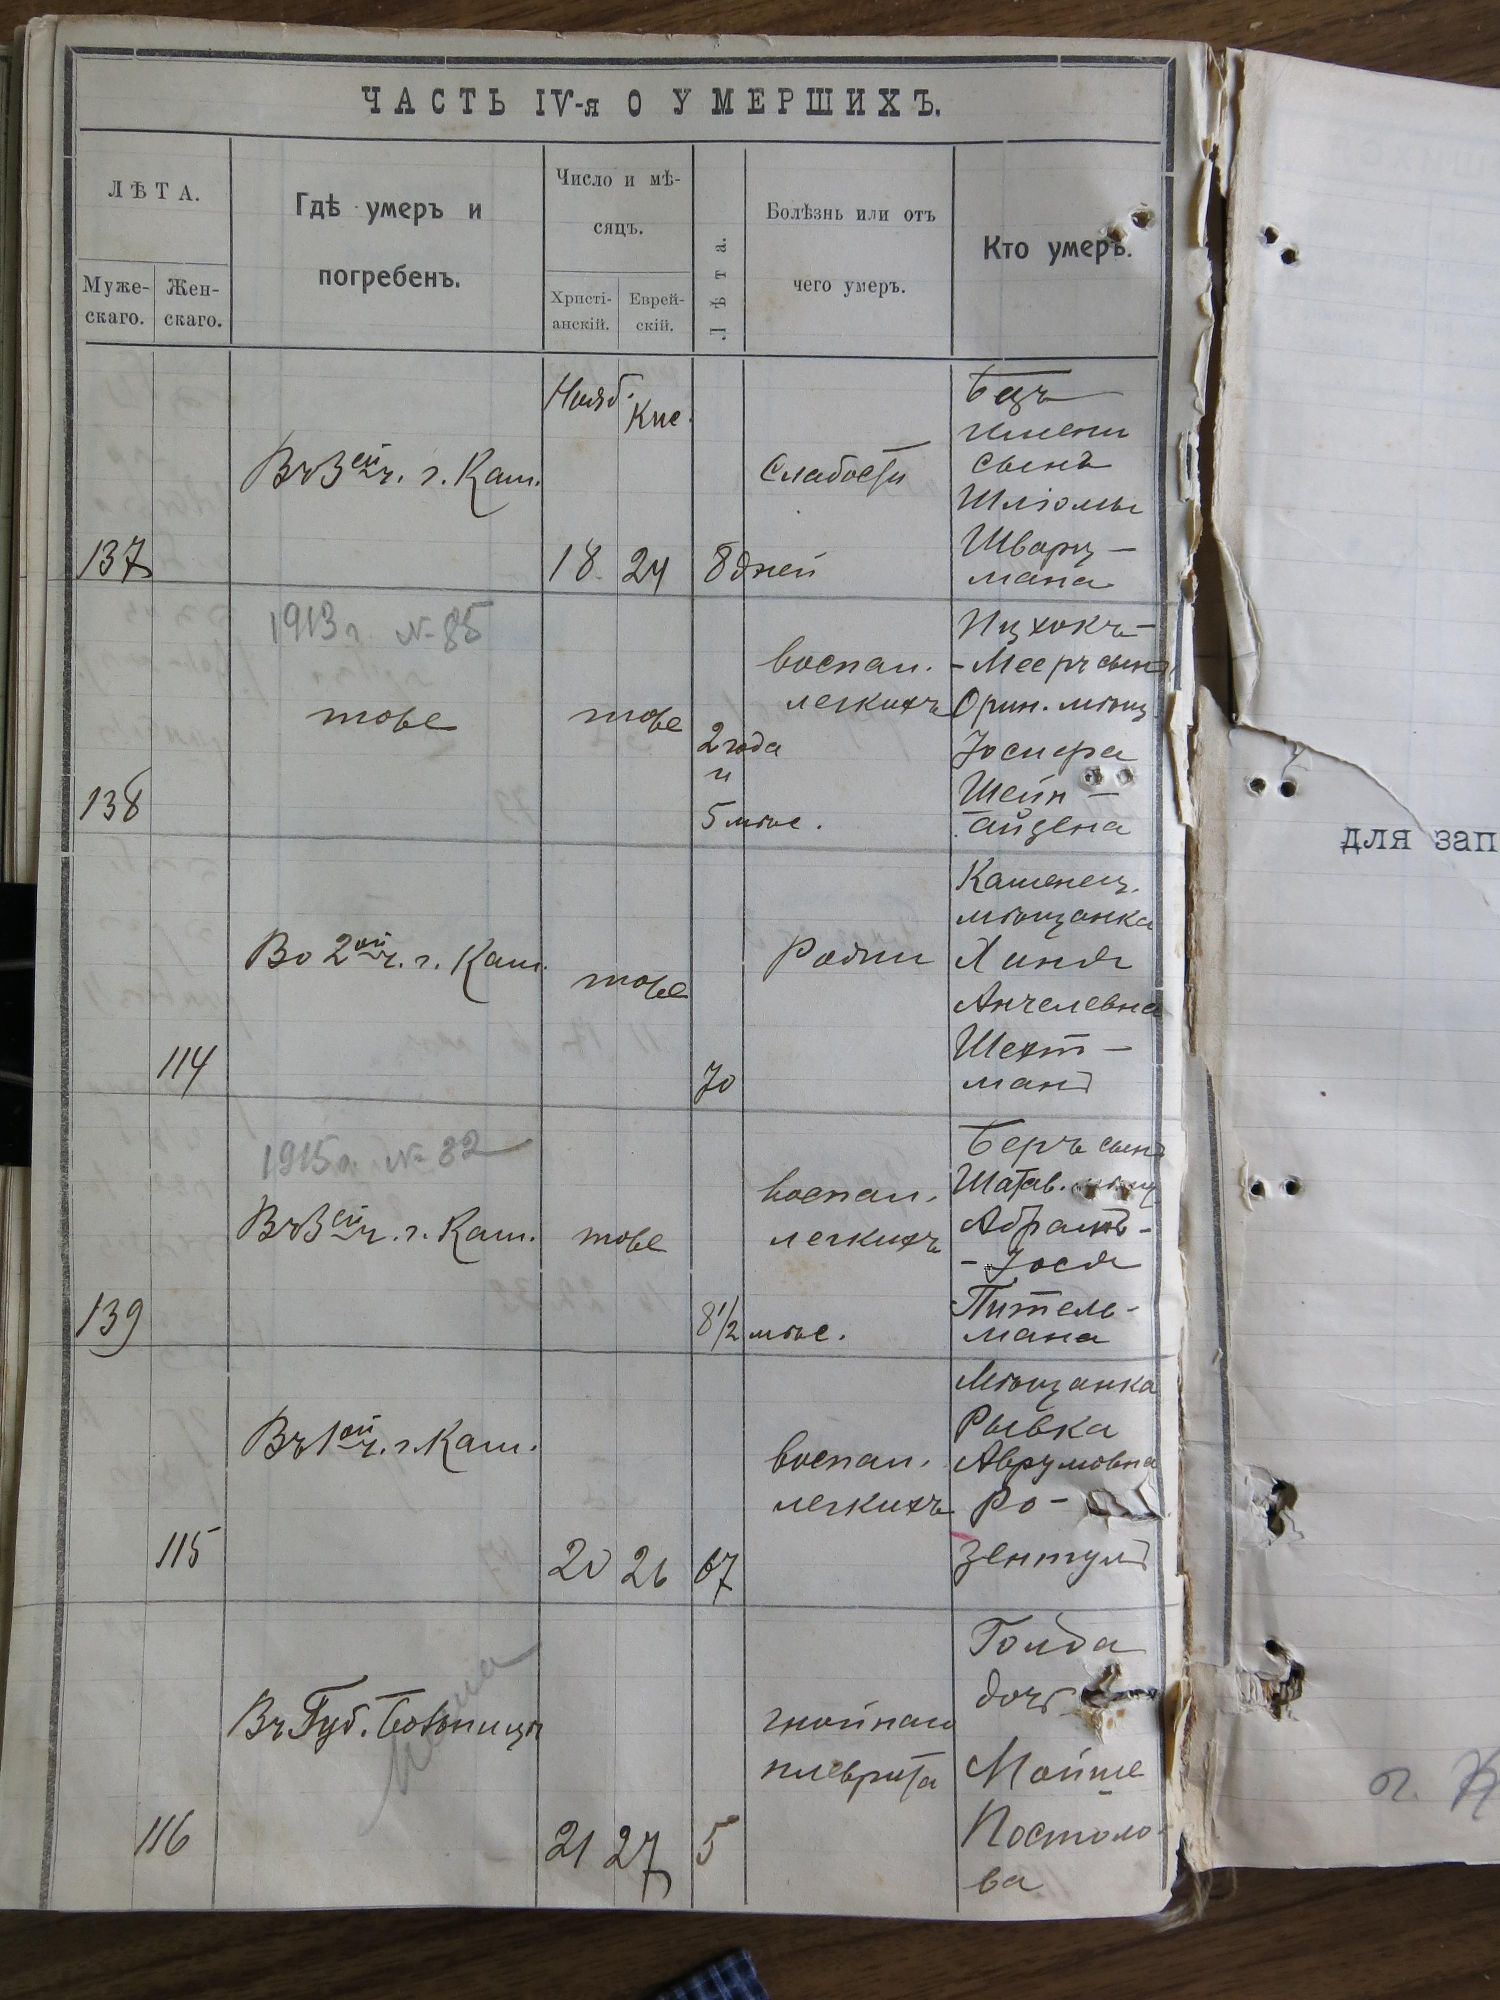 ЧАСТЬ IV-я О УМЕРШИХЪ.
ЛѢТА.
Муже-
скаго.
Жен-
скаго.
Гдѣ умеръ и
погребенъ.
Число и мѣ-
сяцъ.
Христі-
анскій.
Еврей-
скій.
Лѣта.
Болѣзнь или отъ
чего умеръ.
Кто умеръ.
137
Въ 3ей ч. г. Кам.
Нояб.
Кис.
18
24
8 дней
Слабости
Безъ
имени
сынъ
Шліомы
Шварц-
мана
1913 г. № 85
138
тоже
тоже
2 года
и
5 мѣс.
воспал.
легкихъ
Ицхокъ-
-Мееръ сынъ
Орин. мѣщ
Іосифа
Шейн-
айзена
114
Во 2ой ч. г. Кам.
тоже
70
Каменец.
мѣщанка
Хиня
Анчелевна
Шехт-
манъ
1915 г. № 82
139
Въ 3ей ч. г. Кам.
тоже
8 1/2 мѣс.
воспал.
легкихъ
Беръ сынъ
Шатав.
Абрамъ-
-Іося
Пительмана
115
Въ 1ой ч. г. Кам.
20
26
67
воспал.
легкихъ
Мѣщанка
Рывка
Аврумовна
Ро-
зентулъ
116
Въ Губ. Больницѣ
21
27
5
гнойнаго
плеврита
Голда
дочь
Мойше
Постоло-
ва
для зап
г. К